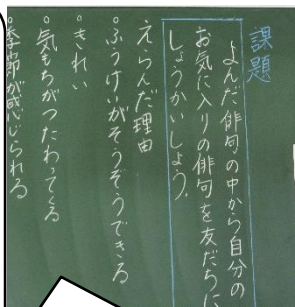 課題
よんだ俳句の中から自分の
お気に入りの俳句を友だちに
しょうかいしよう。
えらんだ理由
○ふうけいがそうぞうできる
○きれい
○気もちがつたわってくる
○季節が感じられる